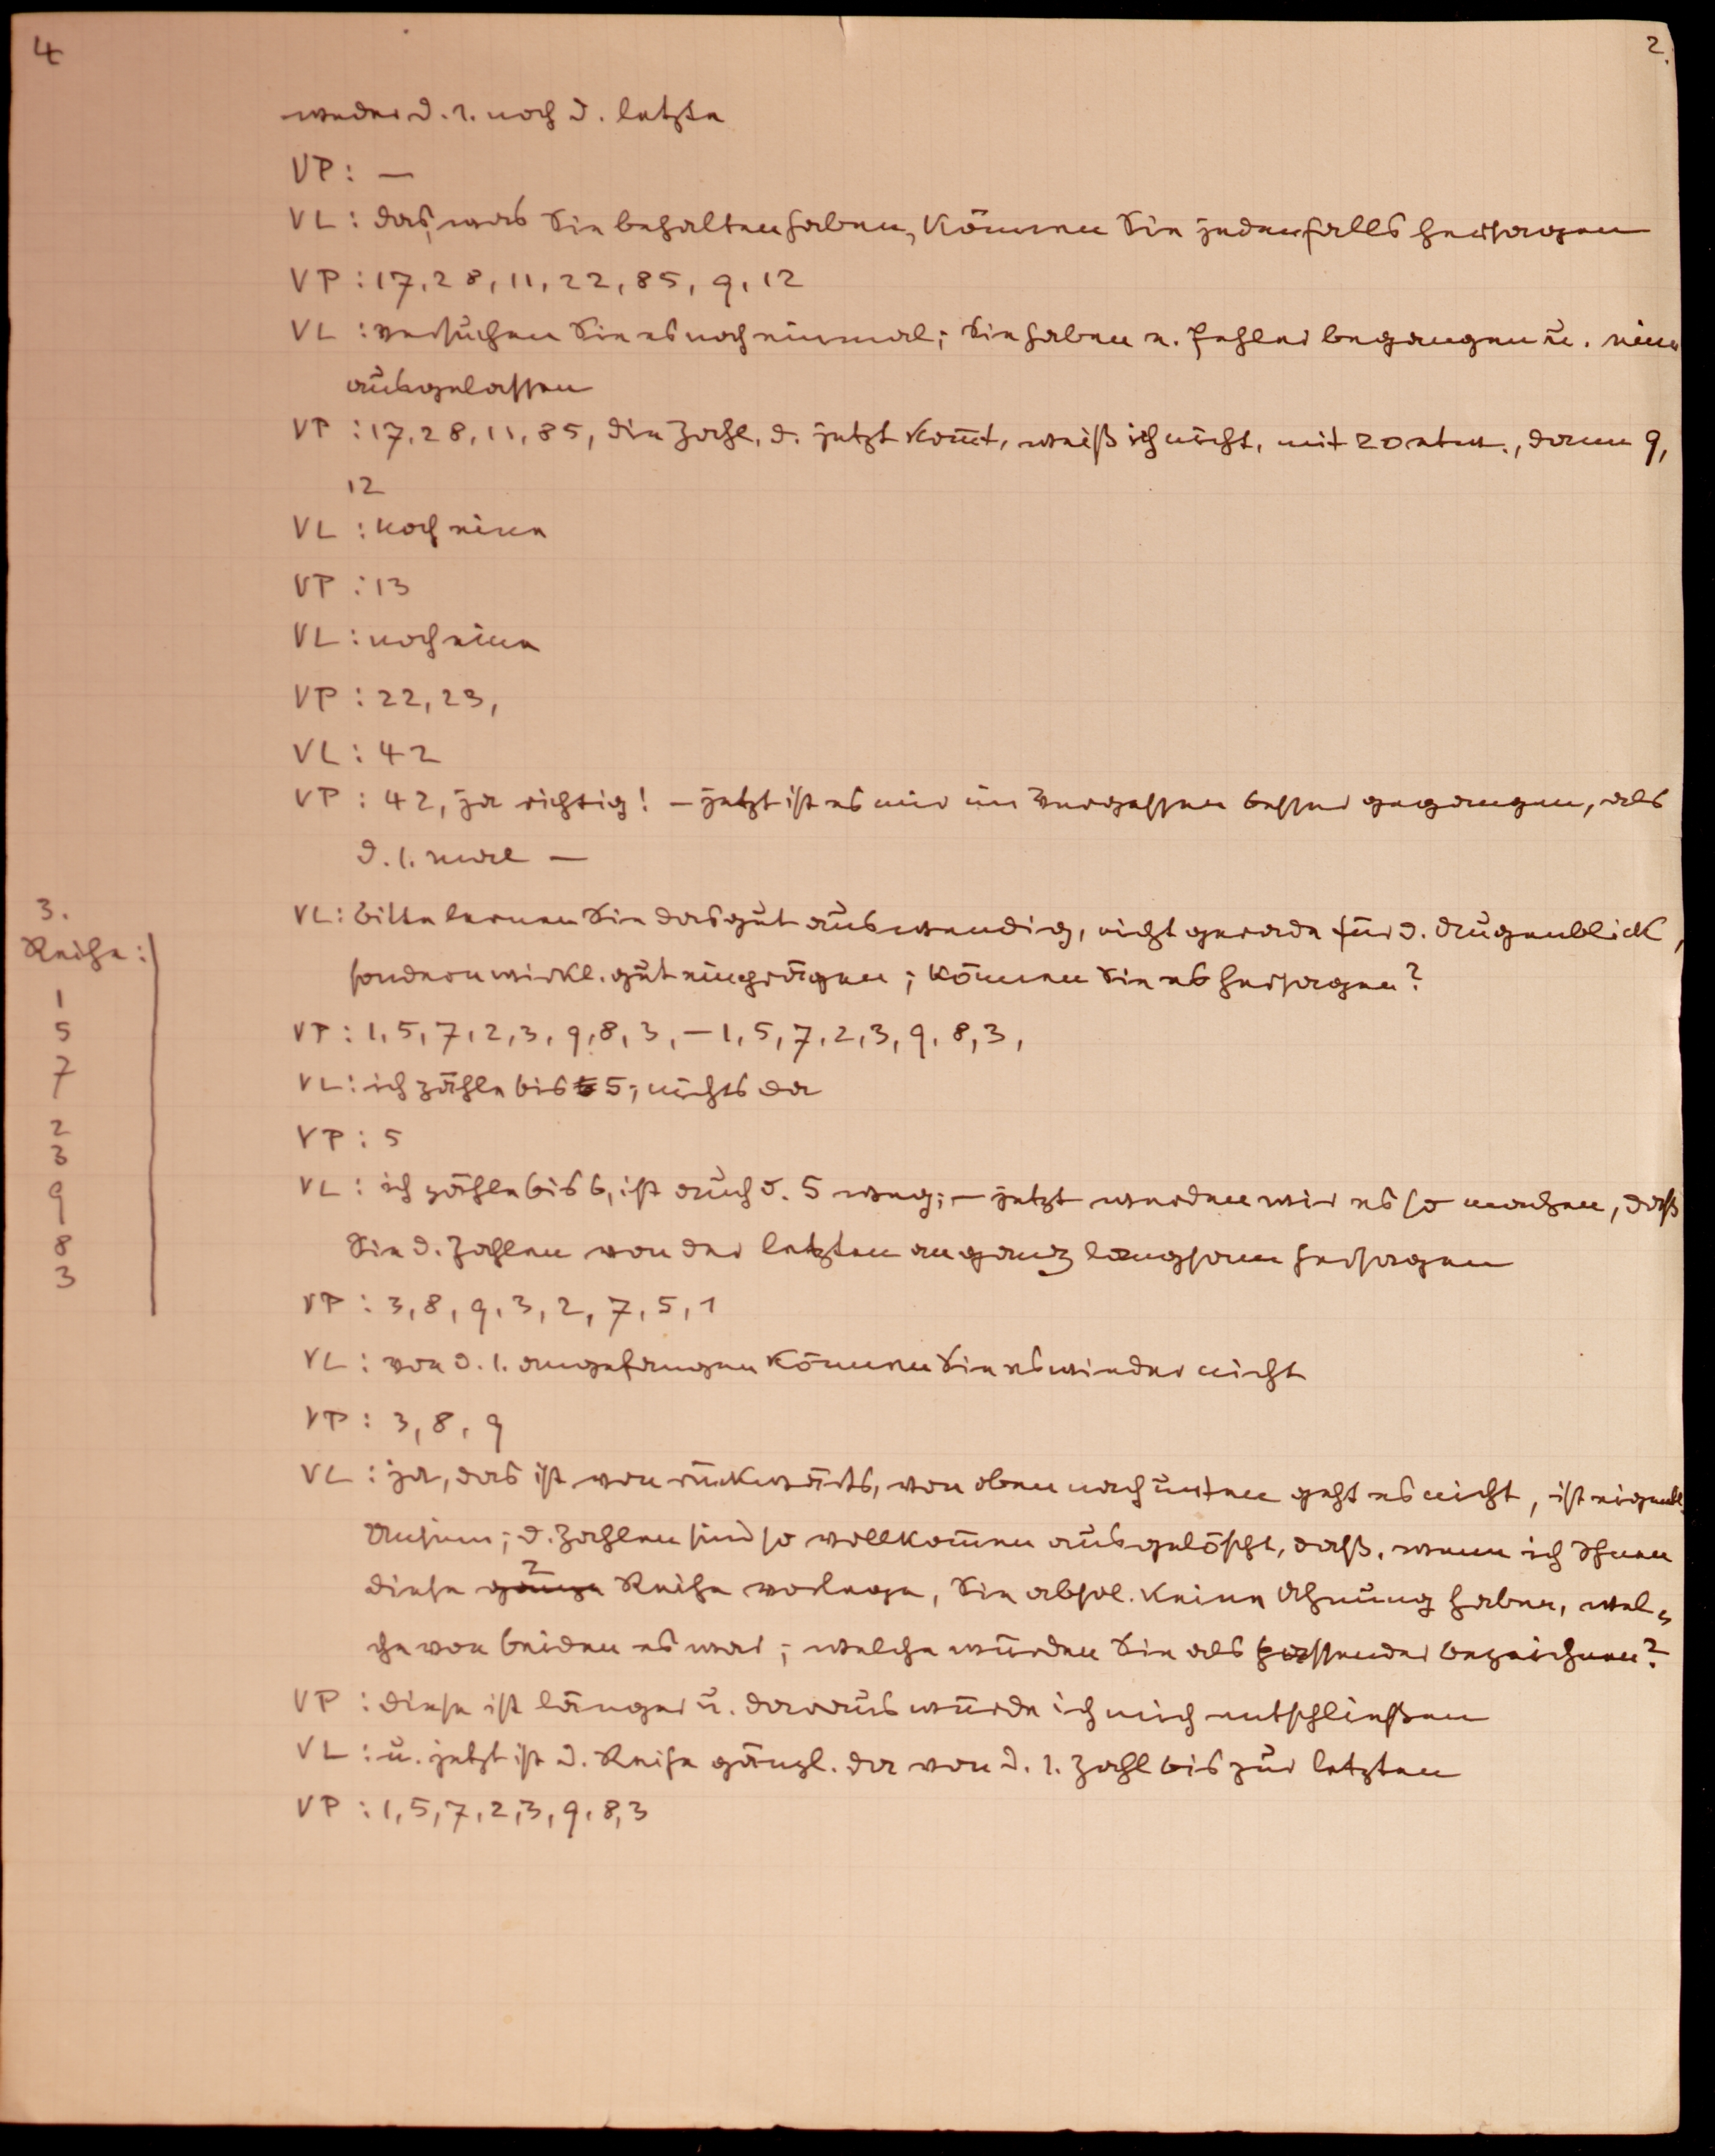 4
2.
weder d. 1. noch d. letzte
VP: —
VL: das, was Sie behalten haben, können Sie jedenfalls hersagen
VP: 17, 28, 11, 22, 85, 9, 12
VL: versuchen Sie es noch einmal; Sie haben e. Fehler begangen u. eine
ausgelassen
VP: 17, 28, 11, 85, die Zahl, d. jetzt kom̄t, weiß ich nicht, mit 20 etw., dann 9,
12
VL: noch eine
VP: 13
VL: noch eine
VP: 22, 23,
VL: 42
VP: 42, ja richtig! — jetzt ist es mir im Vergessen besser gegangen, als
d. 1. mal —
3.
Reihe:
1
5
7
2
3
9
8
3
VL: bitte lernen Sie das gut auswendig, nicht gerade für d. Augenblick,
sondern wirkl. gut einprägen; können Sie es hersagen?
VP: 1, 5, 7, 2, 3, 9, 8, 3, — 1, 5, 7, 2, 3, 9, 8, 3,
VL: ich zähle bis 5; nichts da
VP: 5
VL: ich zähle bis 6, ist auch d. 5 weg; — jetzt werden wir es so machen, daß
Sie d. Zahlen von der letzten an ganz langsam hersagen
VP: 3, 8, 9, 3, 2, 7, 5, 1
VL: von d. 1. angefangen können Sie es wieder nicht
VP: 3, 8, 9
VL: ja, das ist von rückwärts, von oben nach unten geht es nicht, ist eigentl.
Unsinn; d. Zahlen sind so vollkom̄en ausgelöscht, daß, wenn ich Ihnen
diese ganze 2 Reihe vorlege, Sie absol. keine Ahnung haben, wel-
che von beiden es war; welche würden Sie als passender bezeichnen?
VP: diese ist länger u. daraus würde ich mich entschließen
VL: u. jetzt ist d. Reihe gänzl. da von d. 1. Zahl bis zur letzten
VP: 1, 5, 7, 2, 3, 9, 8, 3